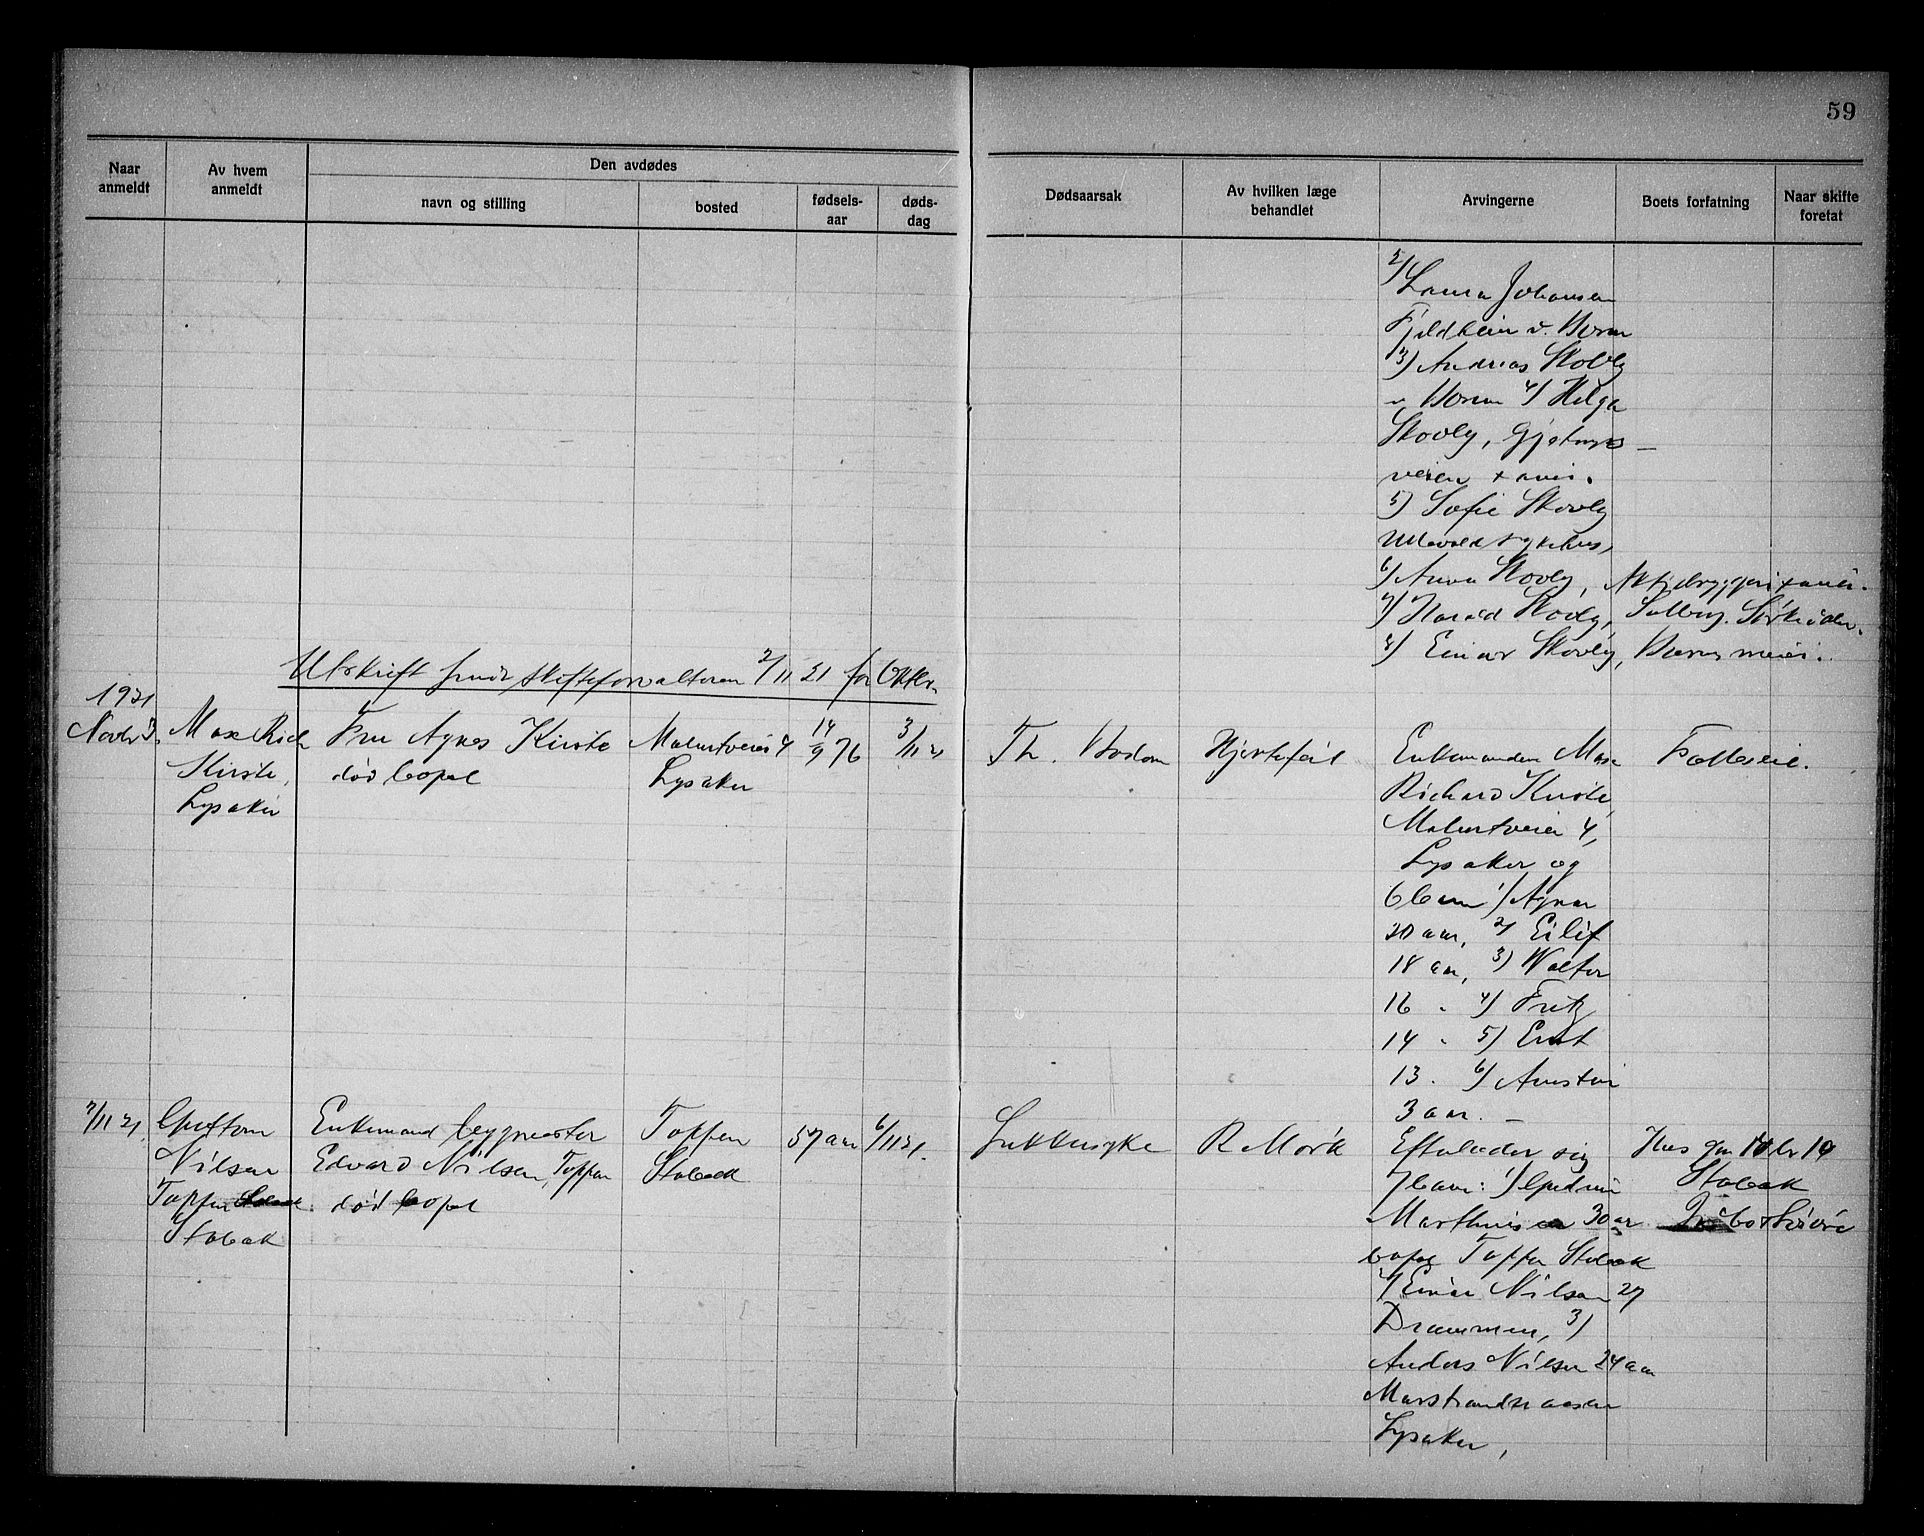 59
Naar anmeldt
Av hvem anmeldt
Den avdødes
navn og stilling
bosted
fødsels-aar
døds-dag
Dødsaarsak
Av hvilken læge behandlet
Arvingerne
Boets forfatning
Naar skifte foretat
2/ Laura Johansen
Fjeldheim v. Bærum
3) Andreas Skovly
Bærum 4/ Helga
Skovly,
veien
5) Sofie Skovly
Ullevold sykehus,
6/ Anna Skovly,
7) Harald Skovly, Solberg.
8) Einar Skovly,
Utskrift sendt skifteforvalteren 2/11 21 for Oktbr.
1921
Novbr 3.
Max Rich
Kirste,
Lysaker
Fru Agnes Kirste
død bopel
Malurtveien 4
Lysaker
14/9 76
3/11 21
Th. Bodom
Hjertefeil
Enkemanden Max
Richard Kirste,
Malurtveien 4,
Lysaker og
6 barn 1) Agnar
20 aar, 2) Eilif
18 aar, 3) Walter
16 " 4) Fritz
14 " 5) Ernst
13 " 6)
3 aar. —
Fælleseie.
7/11 21.
Nilsen
Toppen
Stabæk
Enkemand bygmester
Edvard Nilsen, Toppen
død bopel
Toppen
Stabæk
57 aar
6/11 21.
Sukkersyke
R Mørk
Efterlader sig
7 barn: 1)
Marthinsen 30 aar
bopæl Toppen Stabæk
2) Einar Nilsen 27
Drammen, 3)
Anders Nilsen 24 aar
Lysaker,
Hus
Stabæk